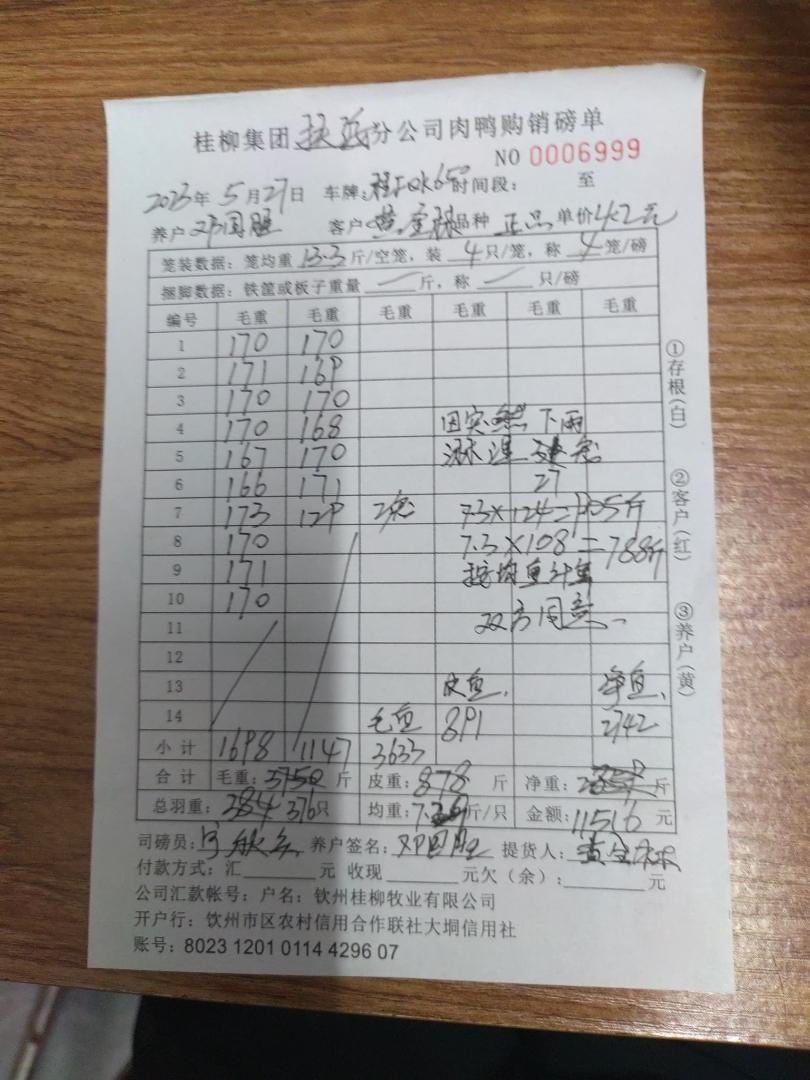 桂柳集团 分公司肉鸭购销磅单
NO 0006999
2023年 5月27日 车牌: 时间段: 至
养户 邓国胜 客户 黄 品种 正品 单价4.2元
笼装数据: 笼均重 13.3 斤/空笼, 装 4 只/笼, 称 4 笼/磅
捆脚数据: 铁筐或板子重量 斤, 称 只/磅
编号 毛重 毛重 毛重 毛重 毛重 毛重
1 170 170
2 171 169
3 170 170
4 170 168 因突然下雨
5 167 170 淋湿
6 166 171 27
7 173 129 7.3×124=905斤
8 170 7.3×108=788斤
9 171 按均重计算
10 170
11 双方同意
12
13 皮重 净重
14 毛重 891 2742
小计 1698 1147 3633
合计 毛重: 斤 皮重: 878 斤 净重: 斤
总羽重: 384 376只 均重: 斤/只 金额: 11516 元
司磅员: 养户签名: 邓国胜 提货人:
付款方式: 汇 元 收现 元欠(余): 元
公司汇款帐号: 户名: 钦州桂柳牧业有限公司
开户行: 钦州市区农村信用合作联社大垌信用社
账号: 8023 1201 0114 4296 07
①存根(白)
②客户(红)
③养户(黄)